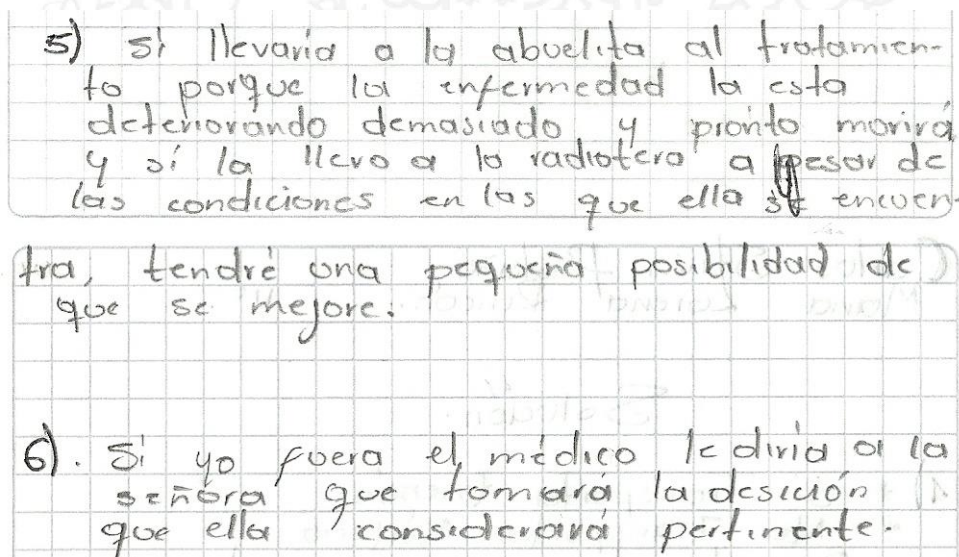 5) si llevaria a la abuelita al tratamien-
to porque la enfermedad la esta
deteriorando demasiado y pronto morirá
y si la llevo a la radiotera a pesar de
las condiciones en las que ella se encuen-
tra, tendré una pequeña posibilidad de
que se mejore.
6). Si yo fuera el médico le diria a la
señora que tomara la desición
que ella considerará pertinente.